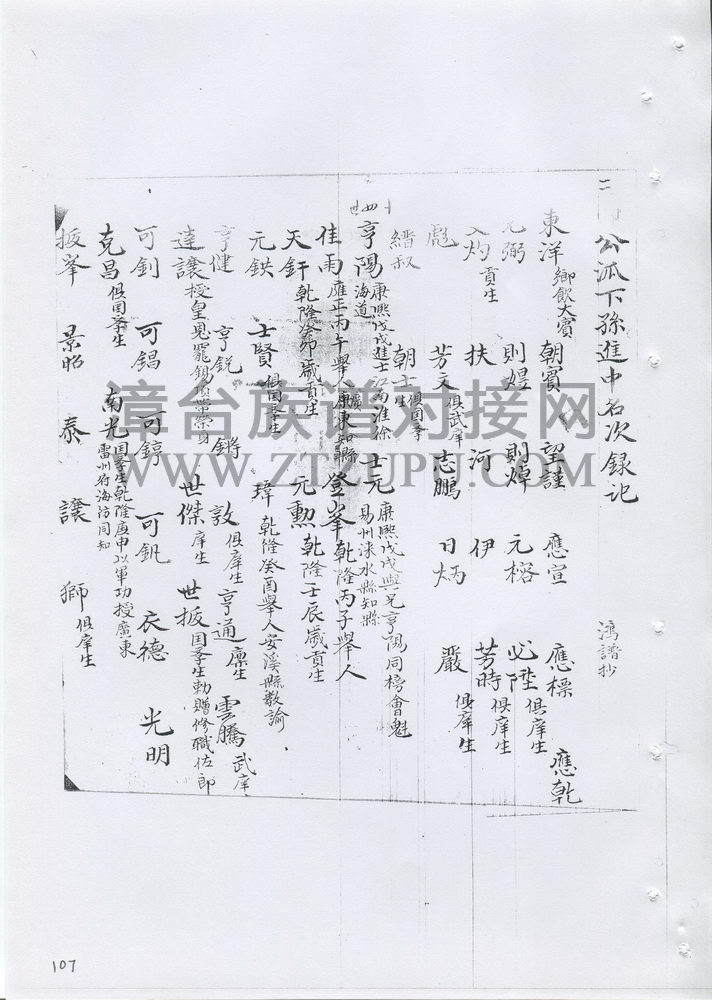 公派下孫進中名次録记
鴻譜抄
東洋 鄉飲大賓 朝賓 望謹 應宣 應標 應乾
元弼 則煜 則焯 元榕 必陞 俱庠生
灼 貢生 扶 河 伊 芳時 俱庠生
彪 芳文 俱武庠 志鵬 日炳 嚴 俱庠生
縉叔 朝士 俱国孚生
十四世
亨陽 康熙戊戌進士江南淮徐海道 士元 康熙戊戌與兄亨陽同榜會魁易州涞水縣知縣
佳雨 雍正丙午舉人廣東知縣 登峯 乾隆丙子舉人
天釬 乾隆癸卯歲貢生 元勲 乾隆壬辰歲貢生
元鉷 士賢 俱国孚生 瑋 乾隆癸酉舉人安溪縣敎諭
亨健 亨鋭 鏘 敦 俱庠生 亨通 廪生 雲騰 武庠
達讓 授皇恩罷錫頂帶榮身 世傑 庠生 世扳 国孚生勅贈修職佐郎
可釗 可錩 可錞 可釩 衣德 光明
克昌 俱国孚生 南光 国孚生乾隆庚申以軍功授廣東雷州府海防同知
扳峯 景昭 泰 讓 獅 俱庠生
107
漳台族谱对接网
WWW.ZTZUPU.COM